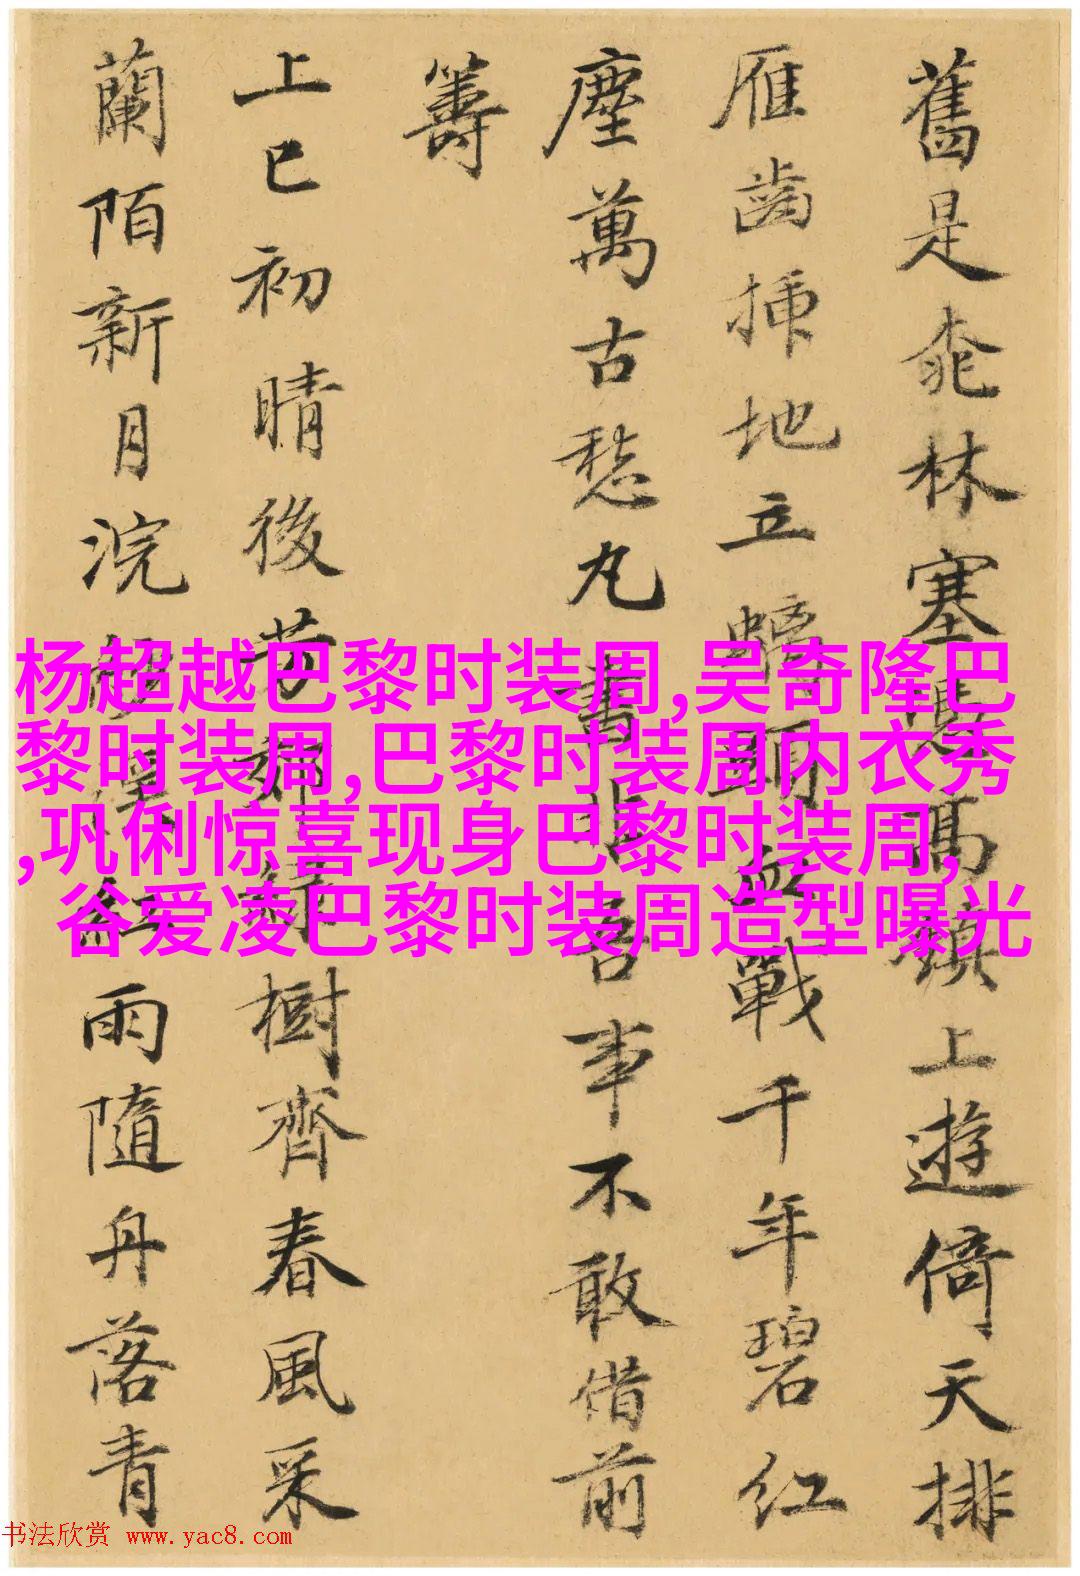 舊是桃林塞憑高鎮上遊倚天排
雁齒插地立螭頭血戰千年碧紅
塵萬古愁丸書非吾事不敢借前
籌
上巳初晴後芳綠樹齊春風采
蘭陌新月浣溪紅雨隨舟落青
杨超越巴黎时装周,吴奇隆巴
黎时装周,巴黎时装周内衣秀
,巩俐惊喜现身巴黎时装周,
谷爱凌巴黎时装周造型曝光
书法欣赏 www.yac8.com